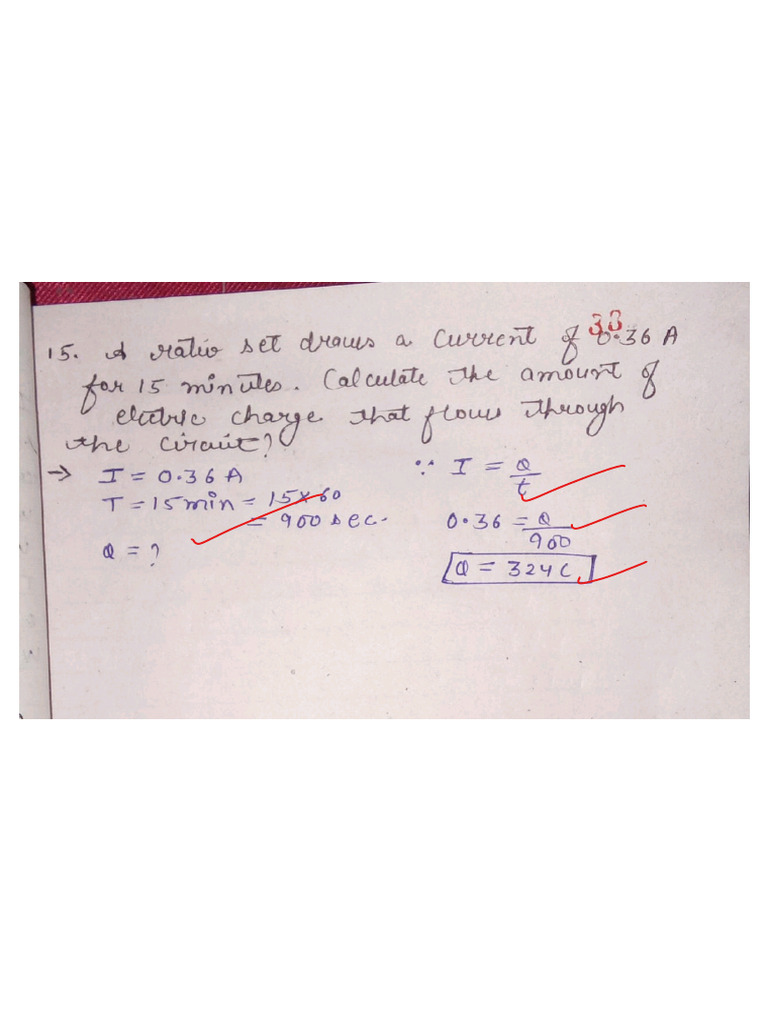 33
15. A ratio set draws a current of 0.36 A
for 15 minutes. Calculate the amount of
electric charge that flows through
the circuit?
→ I = 0.36A
T = 15min = 15×60
= 900 sec.
Q = ?
∵ I = Q/t
0.36 = Q/900
Q = 324C